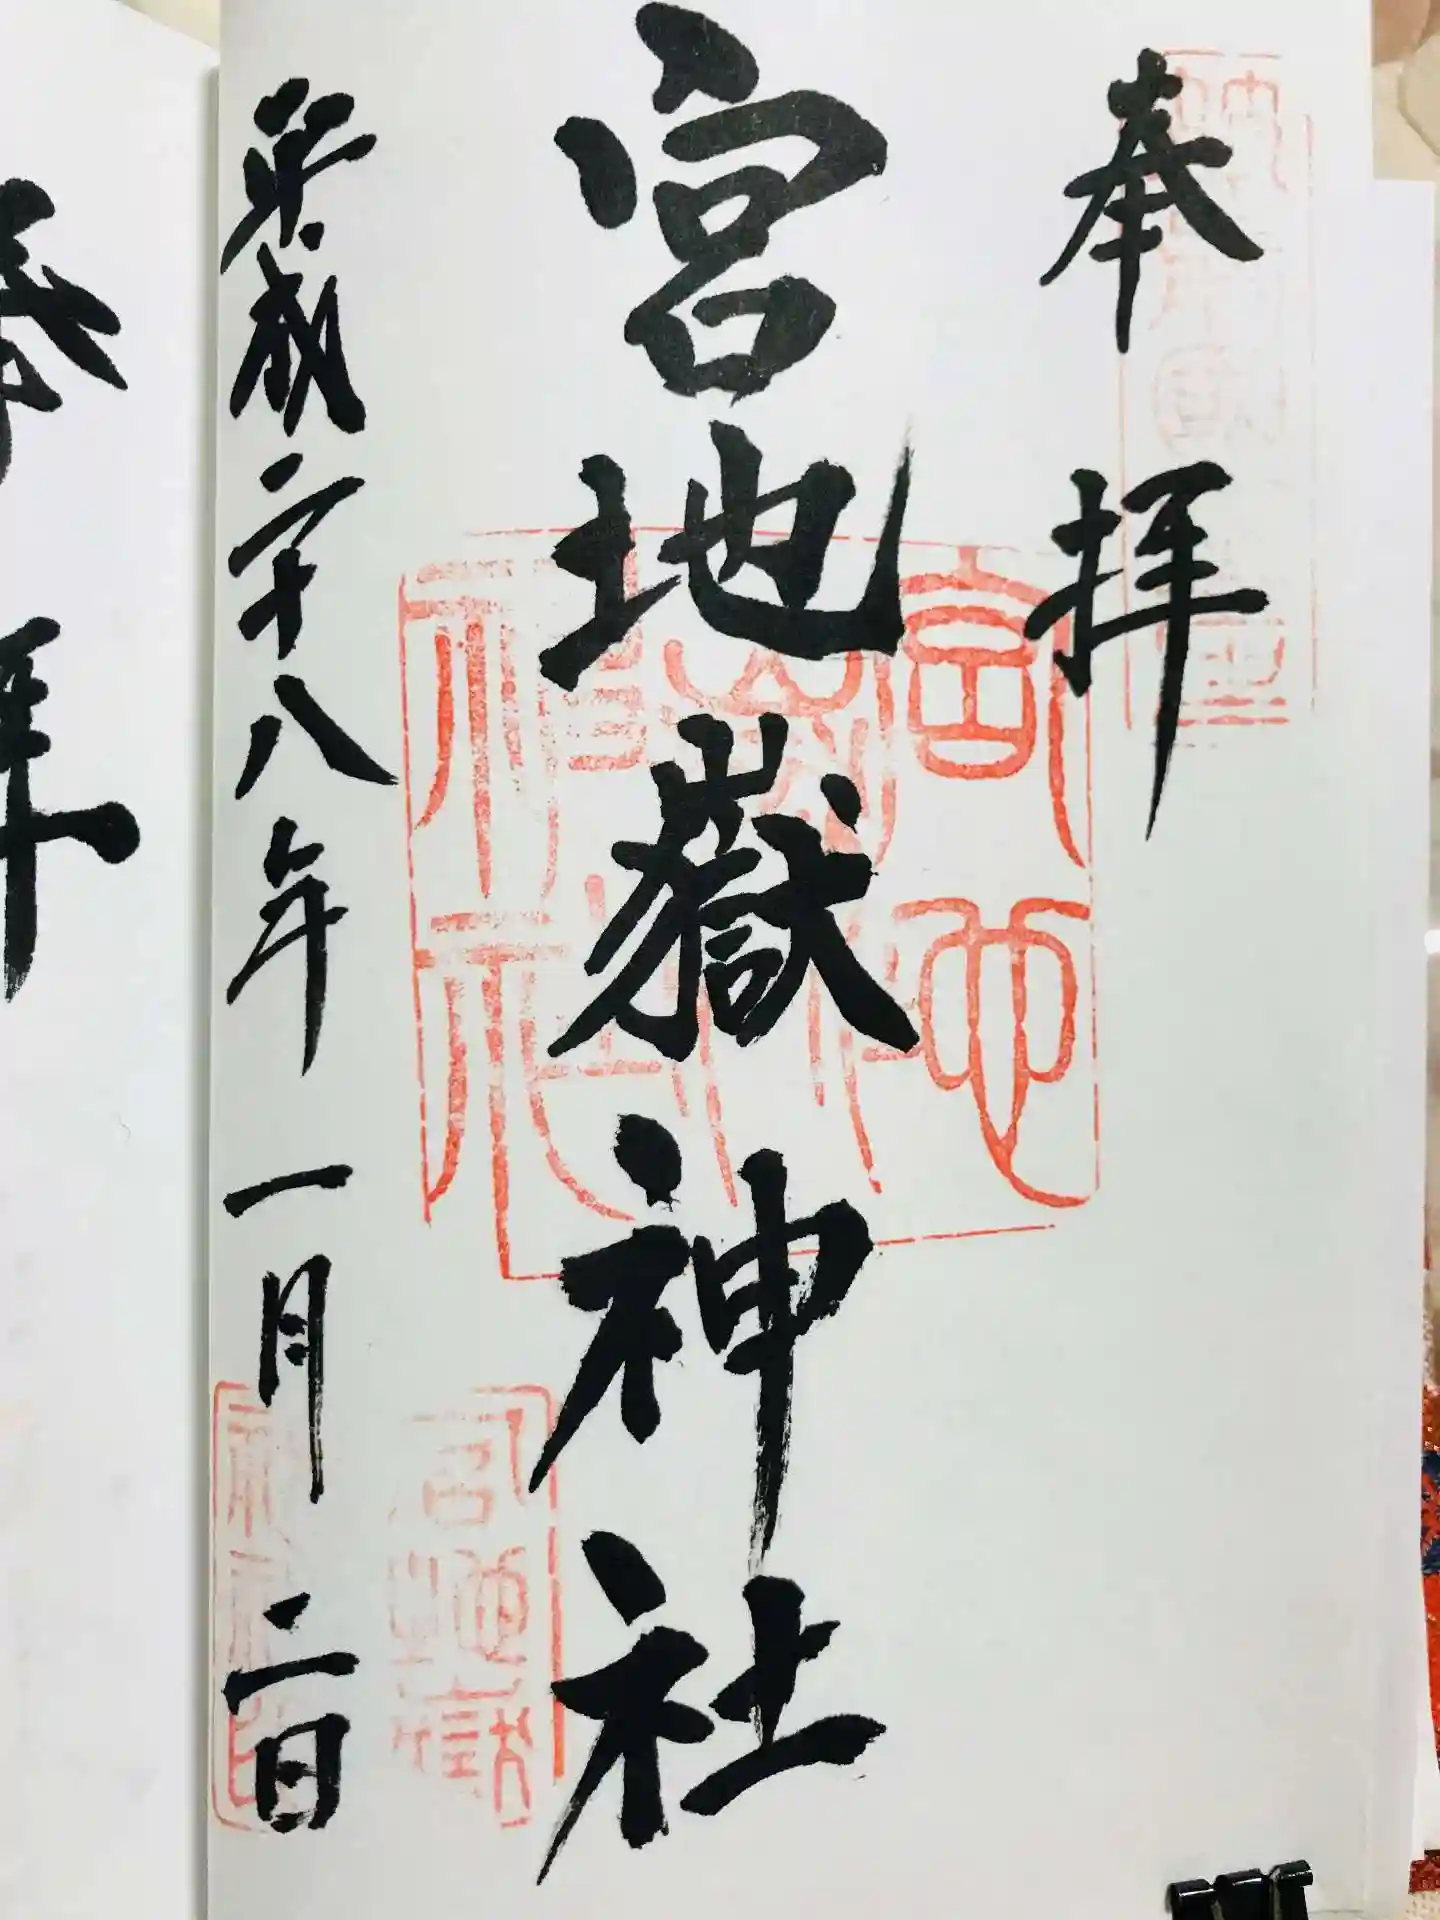 奉拝
宮地嶽神社
平成二十八年一月二日
宮地嶽神社
奉拝